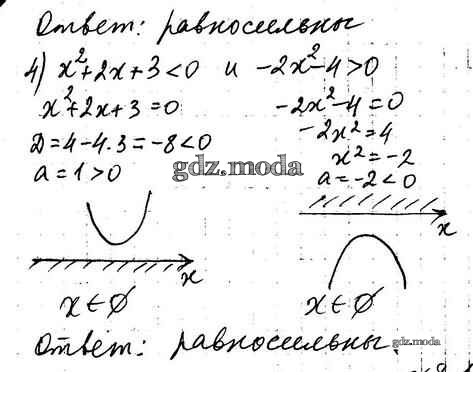 Ответ: равносильны
4) x²+2x+3<0 и -2x²-4>0
x²+2x+3=0
Д=4-4·3=-8<0
a=1>0
x
x∈∅
-2x²-4=0
-2x²=4
x²=-2
a=-2<0
x
x∈∅
gdz.moda
Ответ: равносильны.
gdz.moda